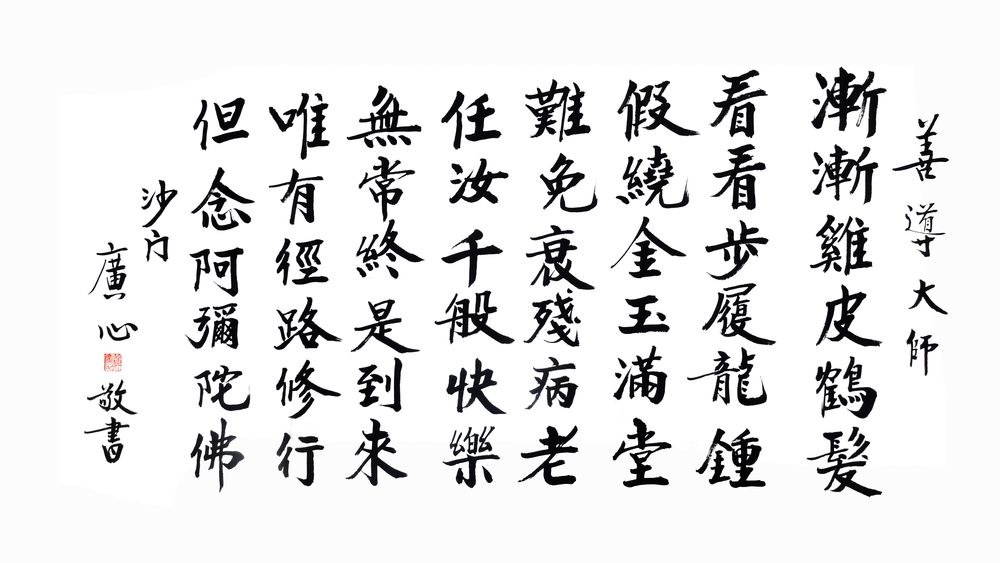 善導大師
漸漸雞皮鶴髮
看看步履龍鍾
假繞金玉滿堂
難免衰殘病老
任汝千般快樂
無常終是到來
唯有徑路修行
但念阿彌陀佛
沙門
廣心
敬書